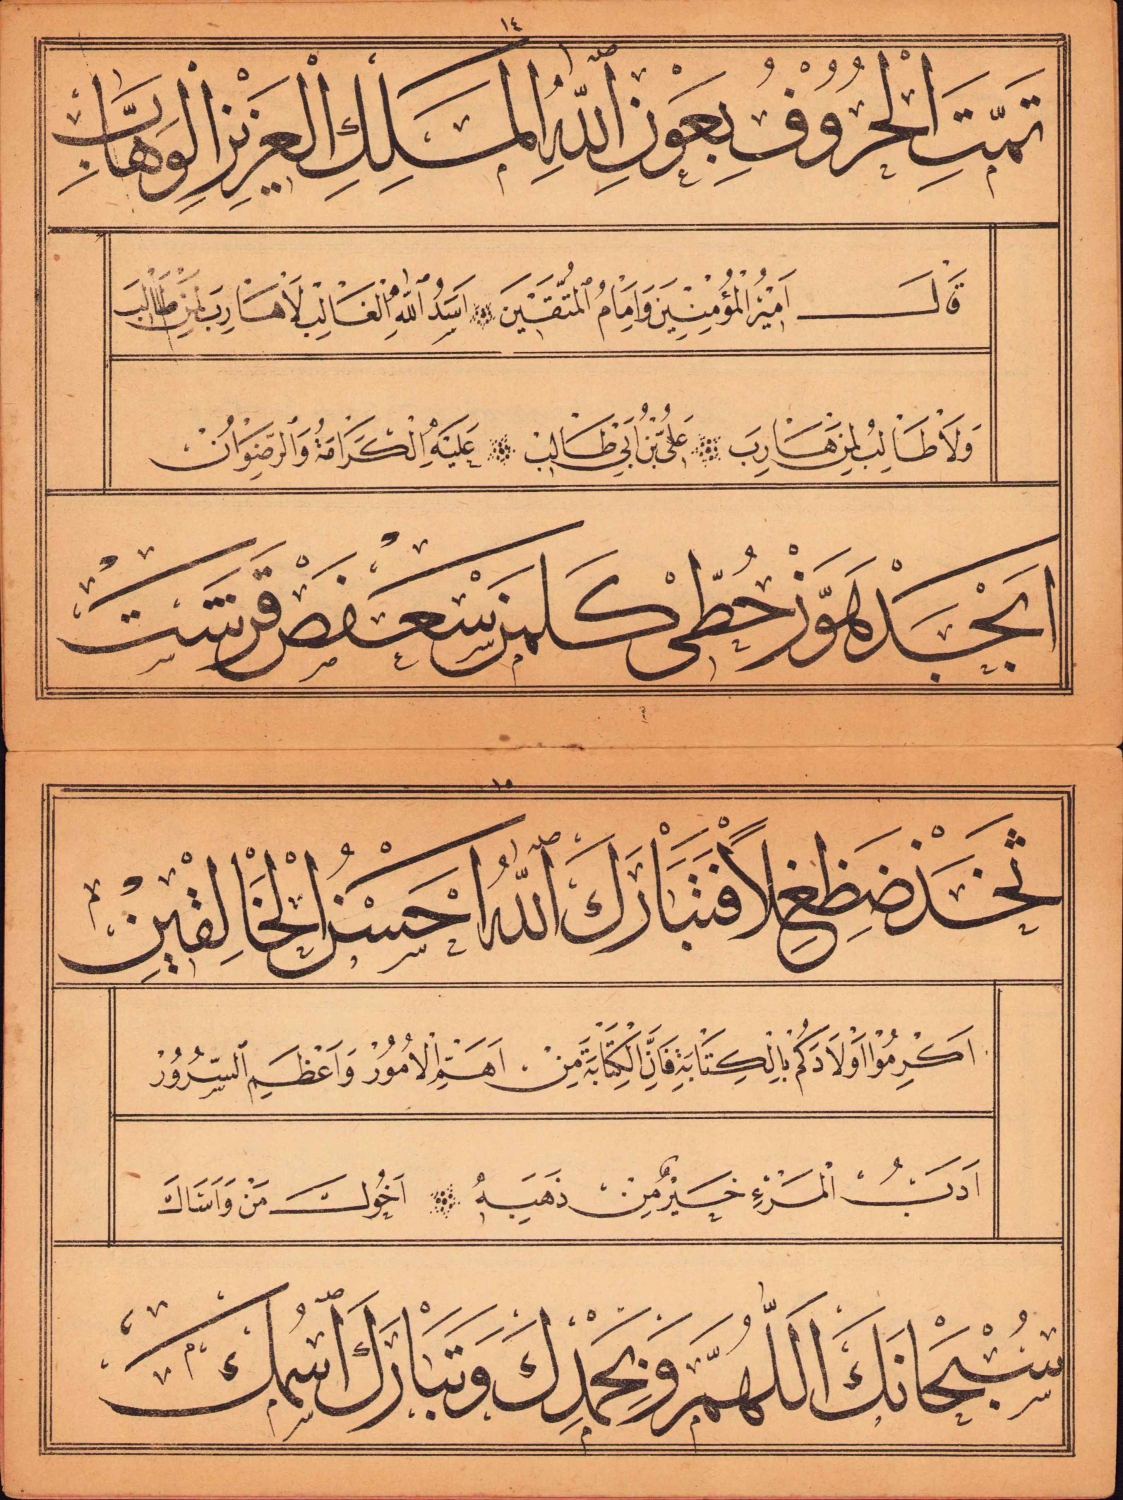 ١٤
تَمَّتِ الْحُرُوفُ بِعَوْنِ اللّٰهِ الْمَلِكِ الْعَزِيزِ الْوَهَّابِ
قَالَ اَمِيْرُ الْمُؤْمِنِيْنَ وَاِمَامُ الْمُتَّقِيْنَ اَسَدُ اللّٰهِ الْغَالِبْ لَا هَارِبَ لِمَنْ طَالَبَ
وَلَا طَالِبُ لِمَنْ هَارِبَ عَلِىُّ بْنُ اَبِيْ طَالِبْ عَلَيْهِ الْكَرَامَةُ وَالرِّضْوَانُ
اَبْجَدْ هَوَّزْ حُطِّى كَلَمَنْ سَعْفَصْ قَرَشَتْ
١٥
ثَخَذْ ضَظِغِلًا فَتَبَارَكَ اللّٰهُ اَحْسَنُ الْخَالِقِيْنَ
اَكْرِمُوْا اَوْلَادَكُمْ بِالْكِتَابَةِ فَاِنَّ الْكِتَابَةَ مِنْ اَهَمِّ الْاُمُوْرِ وَاَعْظَمِ السُّرُوْرْ
اَدَبُ الْمَرْءِ خَيْرٌ مِنْ ذَهَبِهِ اَخُوكَ مَنْ وَاسَاكَ
سُبْحَانَكَ اللّٰهُمَّ وَبِحَمْدِكَ وَتَبَارَكَ اسْمُكَ